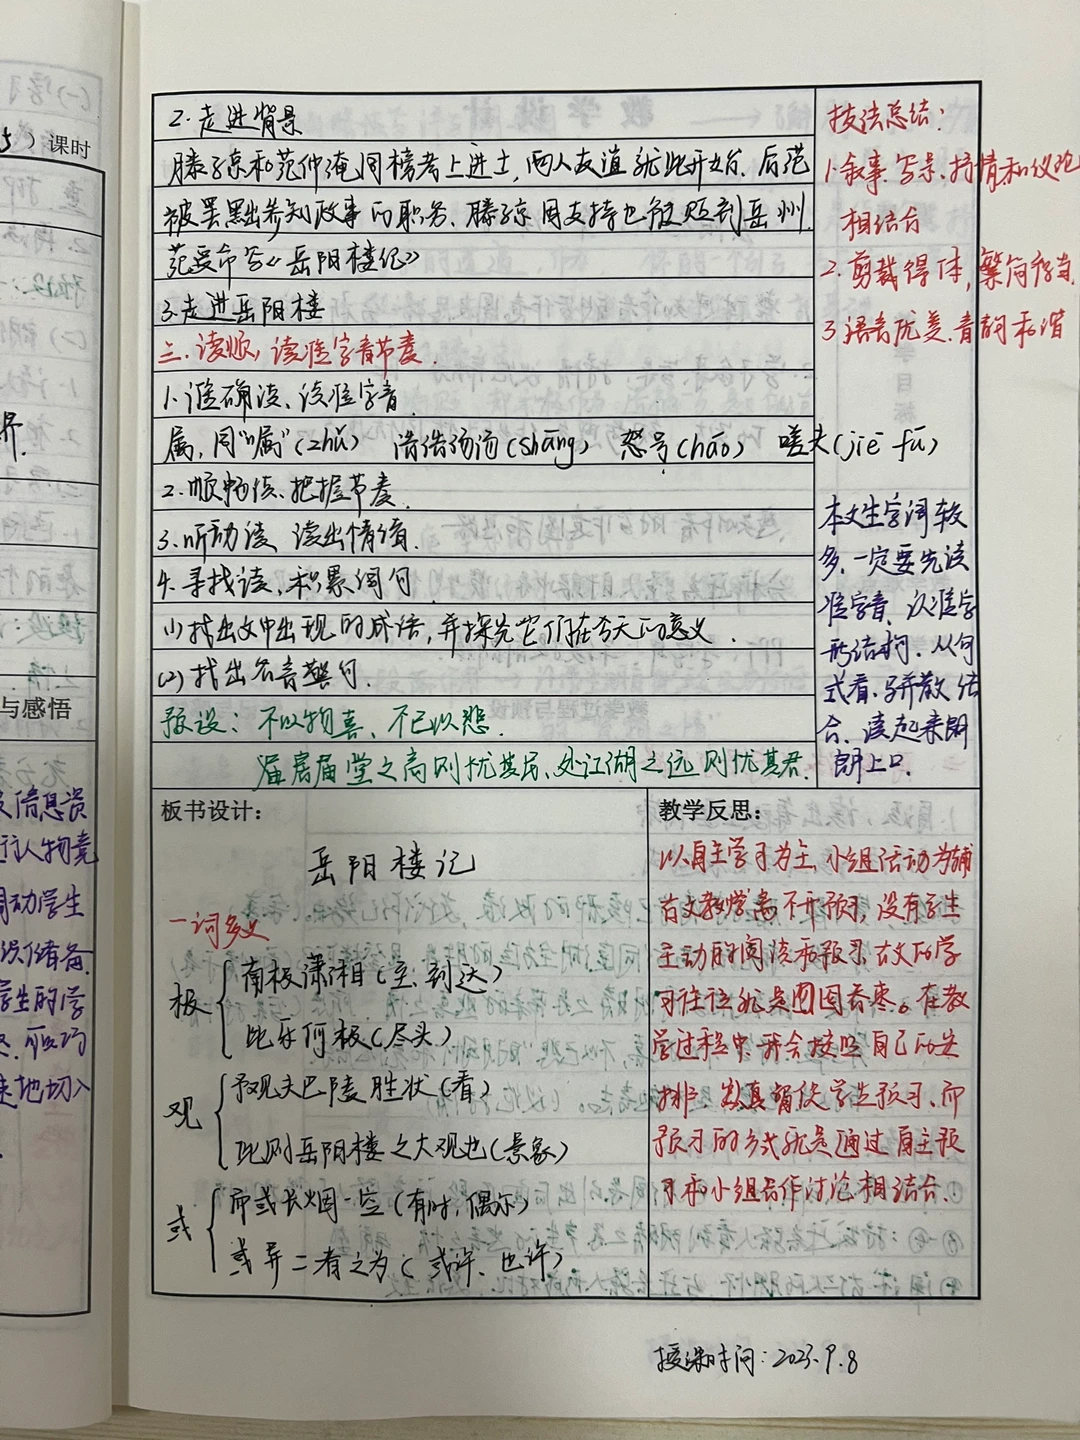 5）课时
界.
与感悟
信息资
行人物竟
动学生
识储备.
学生的学
速地切入
2.走进背景
滕子京和范仲淹同榜考上进士,两人友谊就此开始.后范
被罢黜出参知政事的职务、滕子京因支持也被贬到岳州.
范受命写《岳阳楼记》
3.走进岳阳楼
二.读顺,读准字音节奏.
1.准确读、读准字音
属,同"嘱"(zhǔ) 浩浩汤汤(shāng) 怒号(háo) 嗟夫(jiē fú)
2.顺畅读、把握节奏.
3.听动读 读出情绪.
4.寻找读,积累词句
(1)找出文中出现的成语,并探究它们在今天的意义.
(2)找出名言警句.
预设：不以物喜、不已以悲.
居庙堂之高则忧其民、处江湖之远则忧其君.
技法总结：
1.叙事.写景、抒情和议论
相结合
2.剪裁得体,繁简得当.
3.语言优美.音韵和谐
本文生字词较
多,一定要先读
准字音、认准字
形结构.从句
式看,骈散结
合、读起来朗
朗上口.
板书设计：
岳阳楼记
一词多义
极
南极潇湘(至、到达)
此乐何极(尽头)
观
予观夫巴陵胜状(看)
此则岳阳楼之大观也(景象)
或
而或长烟一空(有时,偶尔)
或异二者之为(或许、也许)
教学反思：
以自主学习为主,小组活动为辅
古文教学离不开预习,没有学生
主动的阅读和预习.古文的学
习往往就是囫囵吞枣。在教
学过程中,我会按照自己的安
排,认真督促学生预习、而
预习的方式就是通过自主预
习和小组合作讨论相结合.
授课时间：2023.9.8